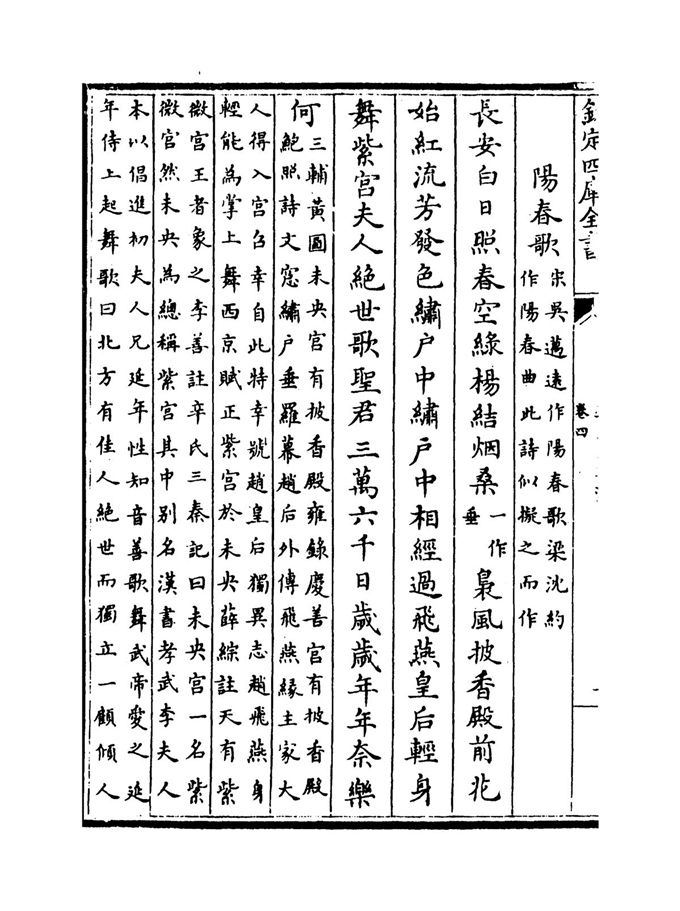 欽定四庫全書
卷四
陽春歌宋吳邁遠作陽春歌梁沈約
作陽春曲此詩似擬之而作
長安白日照春空綠楊結烟桑一作
垂裊風披香殿前花
始紅流芳發色繡户中繡户中相經過飛燕皇后輕身
舞紫宫夫人絶世歌聖君三萬六千日歳歳年年奈樂
何三輔黄圖未央宫有披香殿雍錄慶善宫有披香殿
鮑照詩文窓繡户垂羅幕趙后外傳飛燕緣主家大
人得入宫召幸自此特幸號趙皇后獨異志趙飛燕身
輕能為掌上舞西京賦正紫宫於未央薛綜註天有紫
微宫王者象之李善註辛氏三秦記曰未央宫一名紫
微宫然未央為總稱紫宫其中别名漢書孝武李夫人
本以倡進初夫人兄延年性知音善歌舞武帝愛之延
年侍上起舞歌曰北方有佳人絶世而獨立一顧傾人